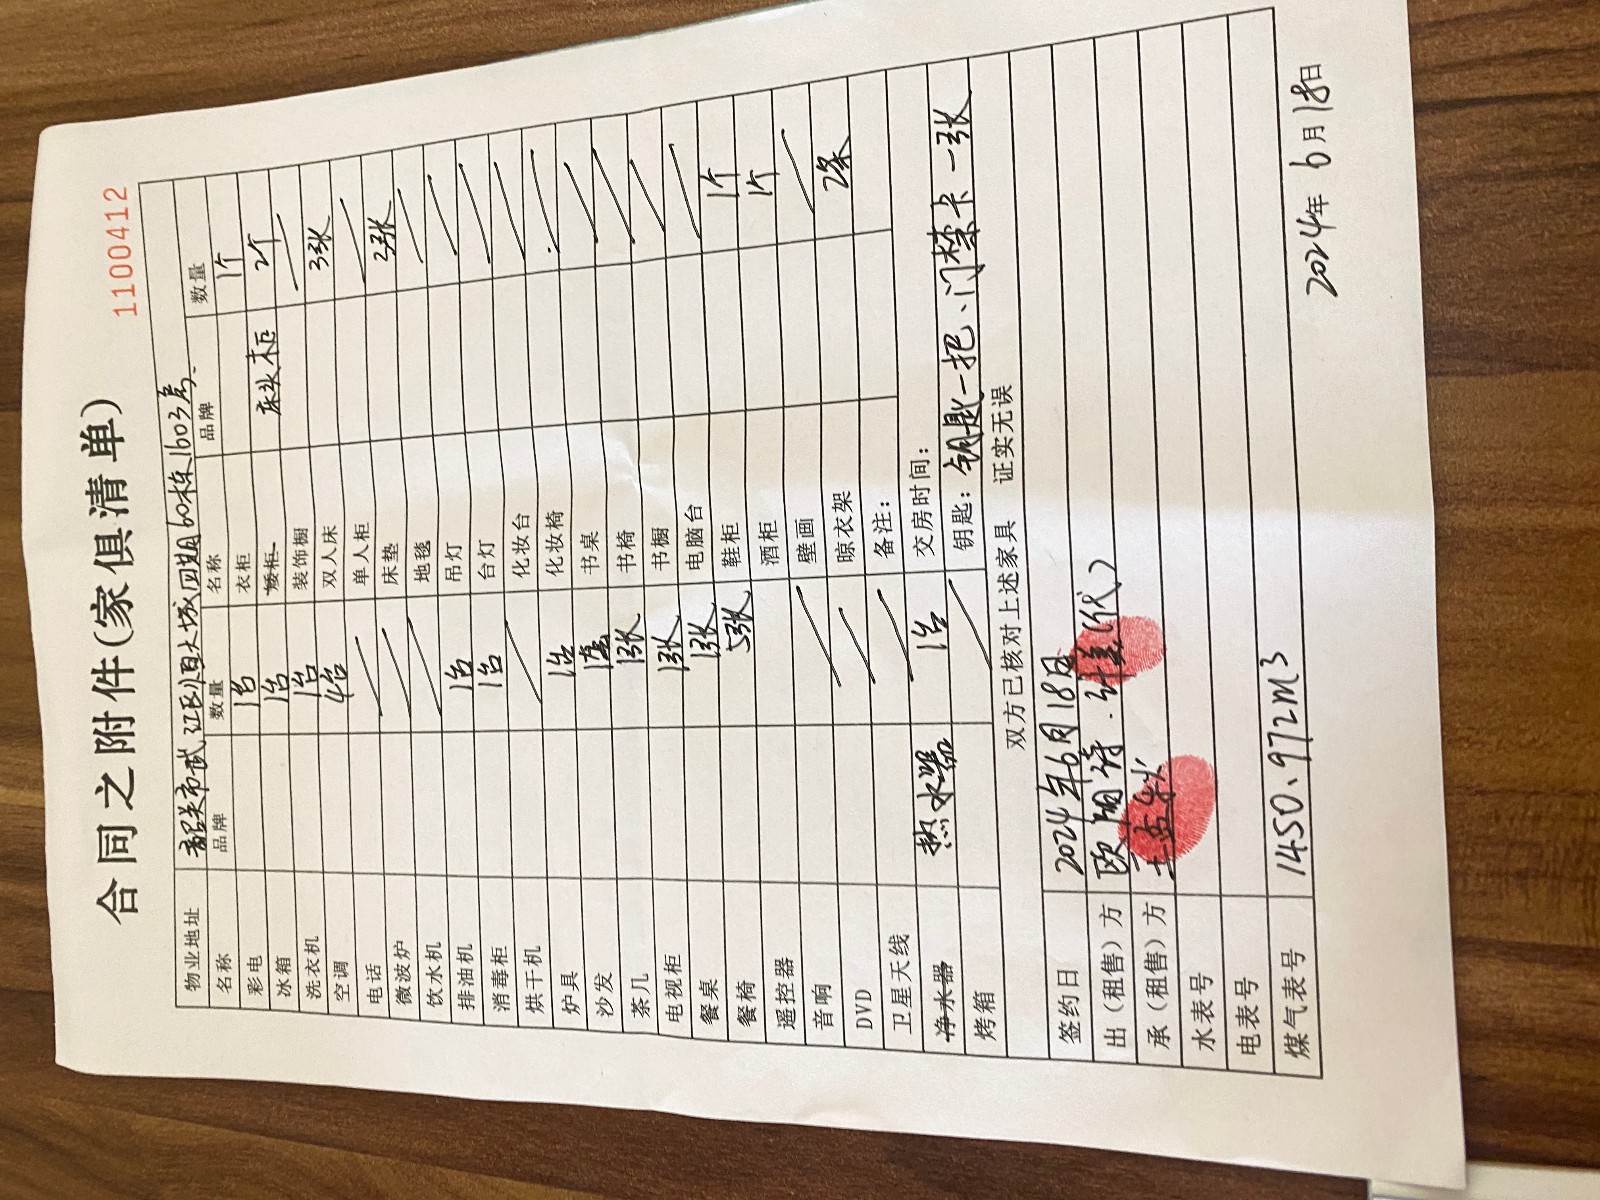 1100412
合同之附件(家俱清单)
物业地址 韶关市武江区小百大城四期60栋1603房
名称 品牌 数量 名称 品牌 数量
彩电 1台 衣柜 1个
冰箱 1台 矮柜 床头柜 2个
洗衣机 1台 装饰橱
空调 4台 双人床 3张
电话 单人柜
微波炉 床垫 3张
饮水机 地毯
排油机 1台 吊灯
消毒柜 1台 台灯
烘干机 化妆台
炉具 1台 化妆椅
沙发 1套 书桌
茶几 1张 书椅
电视柜 1张 书橱
餐桌 1张 电脑台
餐椅 5张 鞋柜 1个
遥控器 酒柜 1个
音响 壁画
DVD 晾衣架 2条
卫星天线 备注:
净水器 热水器 1台 交房时间:
烤箱 钥匙: 钥匙一把、门禁卡一张
双方已核对上述家具 证实无误
签约日 2024年6月18日
出(租售)方 欧阳(代)
承(租售)方
水表号
电表号
煤气表号 1450、972m3
2024年6月18日